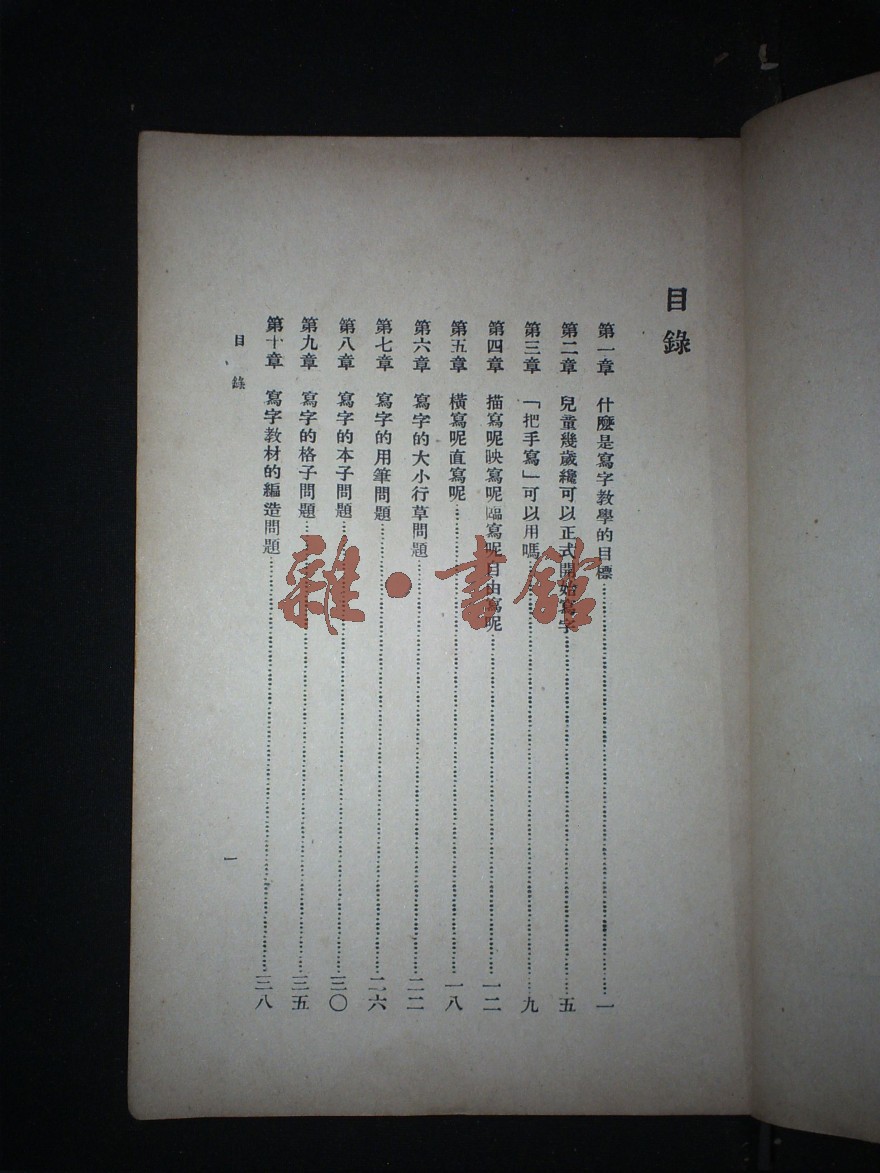 目錄
第一章 什麼是寫字教學的目標……一
第二章 兒童幾歲纔可以正式開始寫字……五
第三章 「把手寫」可以用嗎……九
第四章 描寫呢映寫呢臨寫呢自由寫呢……一二
第五章 橫寫呢直寫呢……一八
第六章 寫字的大小行草問題……二二
第七章 寫字的用筆問題……二六
第八章 寫字的本子問題……三〇
第九章 寫字的格子問題……三五
第十章 寫字教材的編造問題……三八
目錄
一
雜·書館